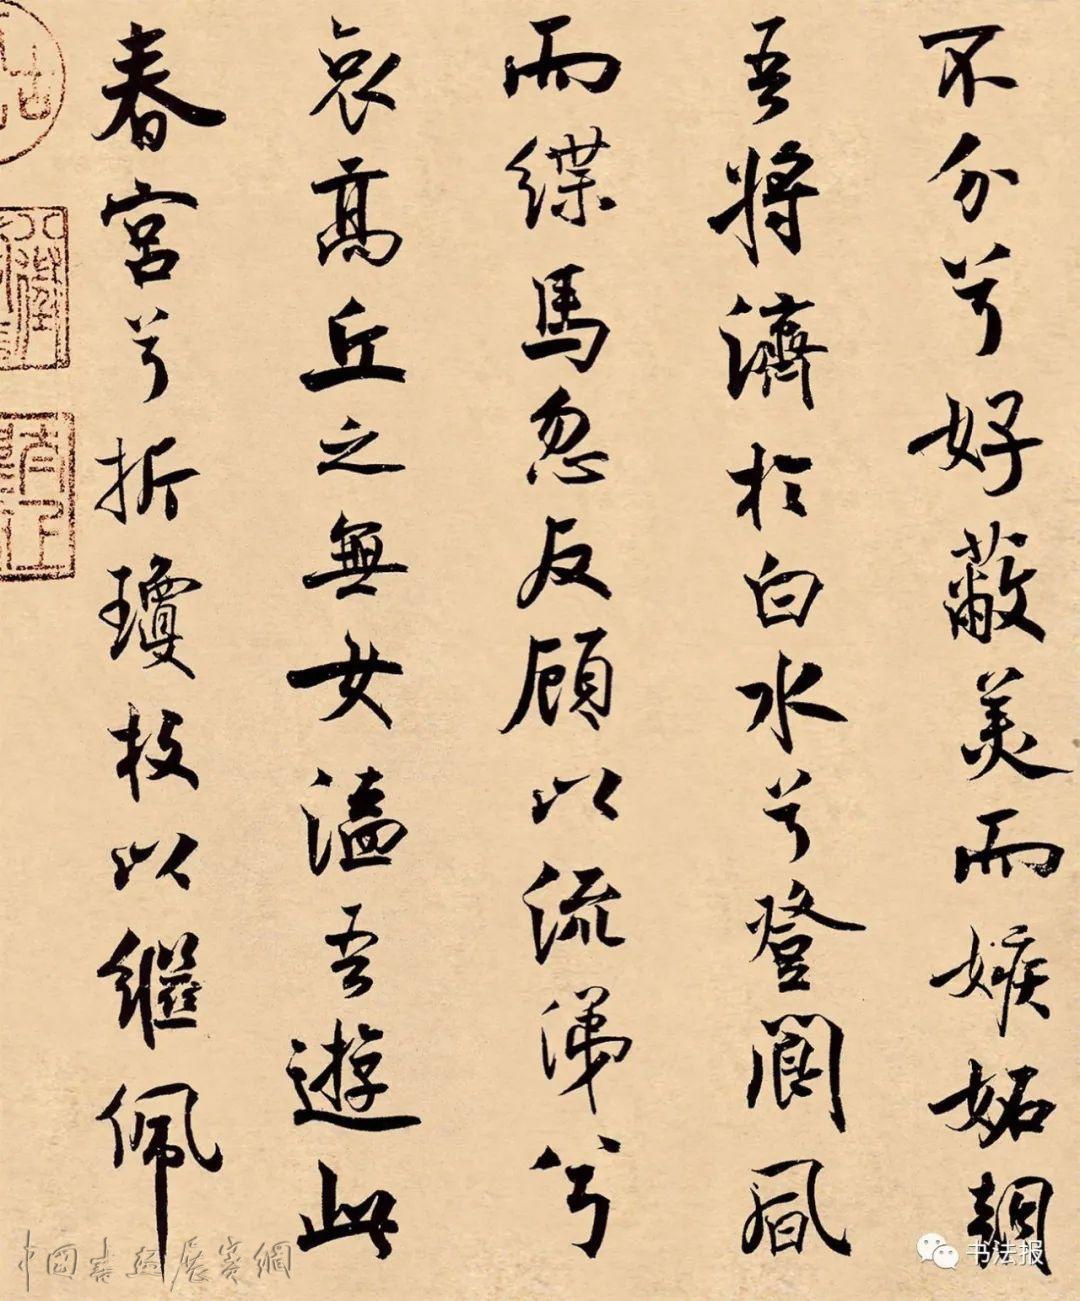 不分兮好蔽美而嫉妬朝
吾將濟於白水兮登閬風
而緤馬忽反顧以流涕兮
哀高丘之無女溘吾遊此
春宮兮折瓊枝以繼佩
中国书法展赛網
书法报